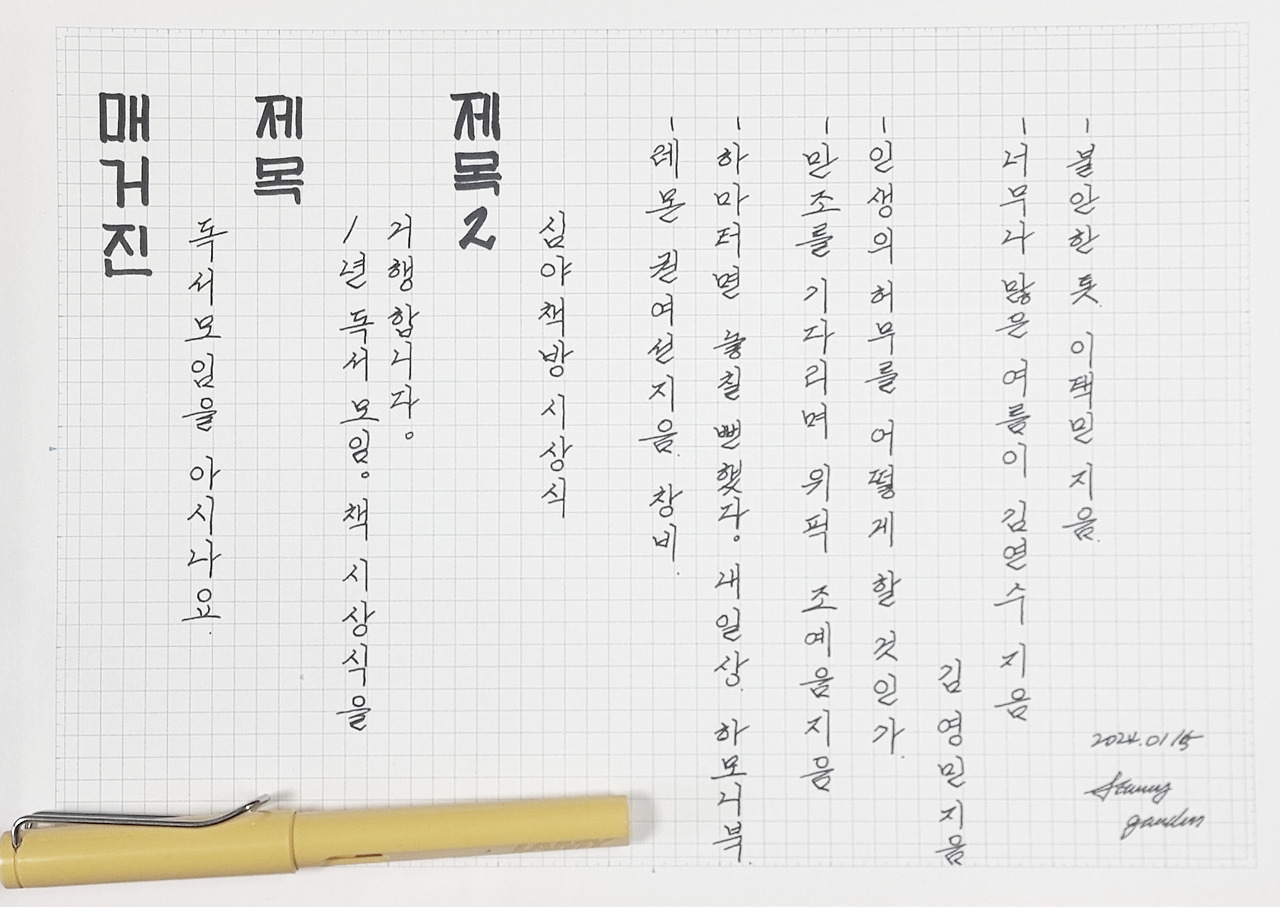 매거진
독서모임을 아시나요.
제목
1년 독서 모임. 책 시상식을
거행합니다.
제목2
심야책방 시상식
- 레몬 권여선지음. 창비.
- 하마터면 놓칠 뻔했다. 내일상. 하모니북
- 만조를 기다리며 위픽 조예음지음
- 인생의 허무를 어떻게 할 것인가
김영민지음
- 너무나 많은 여름이 김연수 지음
- 불안한 톳 이택민 지음.
2024.01.15